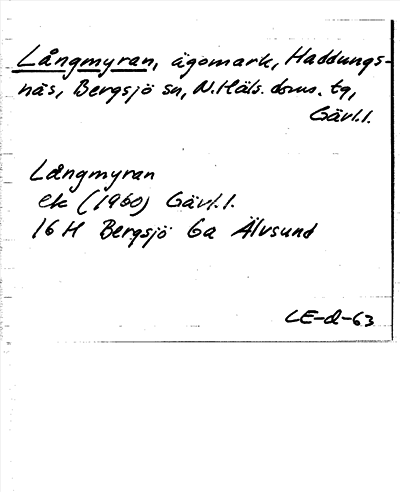 Långmyran, ägomark, Haddungs-
näs, Bergsjö sn, N.Häls. doms. tg,
Gävl.l.
Långmyran
ek (1960) Gävl.l.
16 H Bergsjö 6a Älvsund
LE-d-63